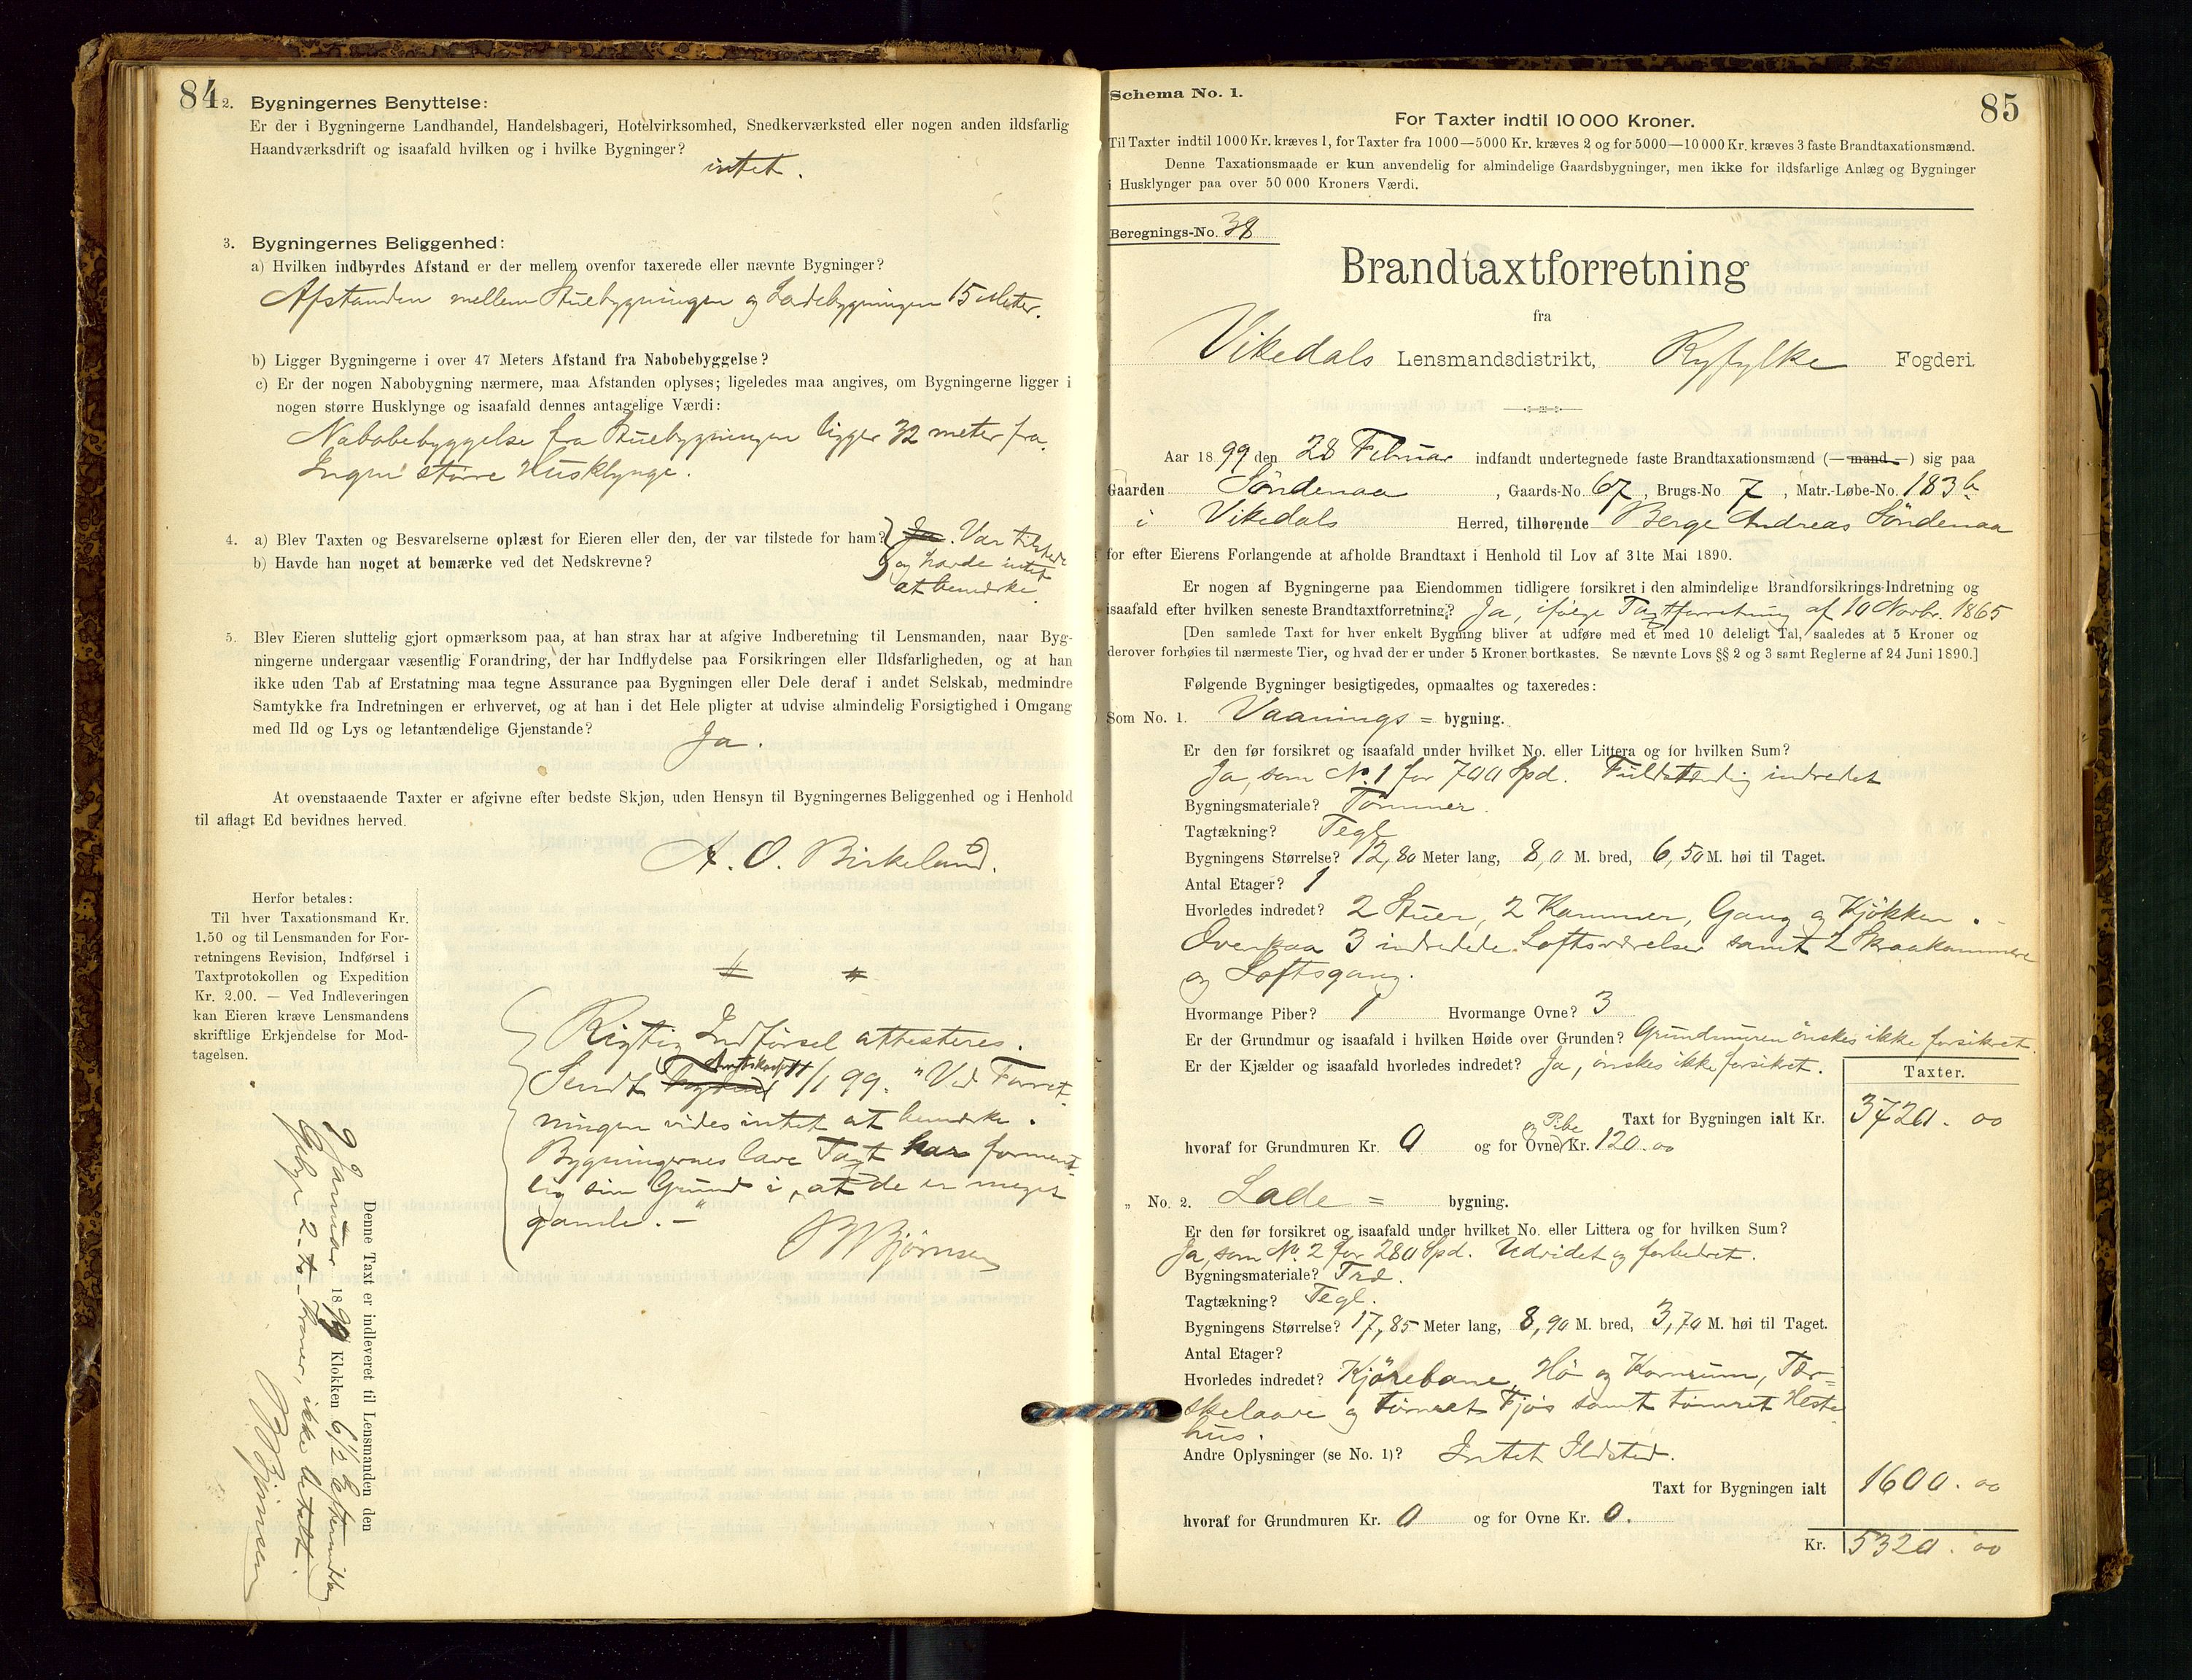 84
2. Bygningernes Benyttelse:
Er der i Bygningerne Landhandel, Handelsbageri, Hotelvirksomhed, Snedkerværksted eller nogen anden ildsfarlig
Haandværksdrift og isaafald hvilken og i hvilke Bygninger?
intet.
3. Bygningernes Beliggenhed:
a) Hvilken indbyrdes Afstand er der mellem ovenfor taxerede eller nævnte Bygninger?
Afstanden mellem Stuebygningen og Ladebygningen 15 Meter.
b) Ligger Bygningerne i over 47 Meters Afstand fra Nabobebyggelse?
c) Er der nogen Nabobygning nærmere, maa Afstanden oplyses; ligeledes maa angives, om Bygningerne ligger i
nogen større Husklynge og isaafald dennes antagelige Værdi:
Nabobebyggelse fra Stuebygningen ligger 32 meter fra.
Ingen større Husklynge.
4. a) Blev Taxten og Besvarelserne oplæst for Eieren eller den, der var tilstede for ham? Ja. Var tilstede
b) Havde han noget at bemærke ved det Nedskrevne? og havde intet
at bemærke.
5. Blev Eieren sluttelig gjort opmærksom paa, at han strax har at afgive Indberetning til Lensmanden, naar Byg-
ningerne undergaar væsentlig Forandring, der har Indflydelse paa Forsikringen eller Ildsfarligheden, og at han
ikke uden Tab af Erstatning maa tegne Assurance paa Bygningen eller Dele deraf i andet Selskab, medmindre
Samtykke fra Indretningen er erhvervet, og at han i det Hele pligter at udvise almindelig Forsigtighed i Omgang
med Ild og Lys og letantændelige Gjenstande?
Ja.
At ovenstaaende Taxter er afgivne efter bedste Skjøn, uden Hensyn til Bygningernes Beliggenhed og i Henhold
til aflagt Ed bevidnes herved.
A. O. Birkeland.
Herfor betales:
Til hver Taxationsmand Kr.
1.50 og til Lensmanden for For-
retningens Revision, Indførsel i
Taxtprotokollen og Expedition
Kr. 2.00. — Ved Indleveringen
kan Eieren kræve Lensmandens
skriftlige Erkjendelse for Mod-
tagelsen.
Rigtig Indførsel attesteres.
Sendt 11/1 99. "Ved Forret-
ningen vides intet at bemærke.
Bygningernes lave Taxt har forment-
lig sin Grund i, at de er meget
gamle. —"
Bjørnsen
Denne Taxt er indleveret til Lensmanden den
9 Januar 1899 Klokken 6 1/2 Eftermiddag
Gebyr 2 - to - Kroner, ikke betalt.
Bjørnsen
85
Schema No. 1.
For Taxter indtil 10 000 Kroner.
Til Taxter indtil 1000 Kr. kræves 1, for Taxter fra 1000—5000 Kr. kræves 2 og for 5000—10 000 Kr. kræves 3 faste Brandtaxationsmænd.
Denne Taxationsmaade er kun anvendelig for almindelige Gaardsbygninger, men ikke for ildsfarlige Anlæg og Bygninger
i Husklynger paa over 50 000 Kroners Værdi.
Beregnings-No. 38
Brandtaxtforretning
fra
Vikedals Lensmandsdistrikt, Ryfylke Fogderi.
Aar 1899 den 28 Februar indfandt undertegnede faste Brandtaxationsmænd (—mand—) sig paa
Gaarden Søndenaa, Gaards-No. 67, Brugs-No 7, Matr.-Løbe-No. 183 b
i Vikedals Herred, tilhørende Berge Andreas Søndenaa
for efter Eierens Forlangende at afholde Brandtaxt i Henhold til Lov af 31te Mai 1890.
Er nogen af Bygningerne paa Eiendommen tidligere forsikret i den almindelige Brandforsikrings-Indretning og
isaafald efter hvilken seneste Brandtaxtforretning? Ja, ifølge Taxtforretning af 10 Novbr. 1865
[Den samlede Taxt for hver enkelt Bygning bliver at udføre med et med 10 deleligt Tal, saaledes at 5 Kroner og
derover forhøies til nærmeste Tier, og hvad der er under 5 Kroner bortkastes. Se nævnte Lovs §§ 2 og 3 samt Reglerne af 24 Juni 1890.]
Følgende Bygninger besigtigedes, opmaaltes og taxeredes:
Som No. 1. Vaanings = bygning.
Er den før forsikret og isaafald under hvilket No. eller Littera og for hvilken Sum?
Ja, som No. 1 for 700 Spd. Fuldstændig indredet
Bygningsmateriale? Tømmer.
Tagtækning? Tegl
Bygningens Størrelse? 12,80 Meter lang, 8,0 M. bred, 6,50 M. høi til Taget.
Antal Etager? 1
Hvorledes indredet? 2 Stuer, 2 Kammer, Gang og Kjøkken.
Ovenpaa 3 indredede Loftsværelser samt 2 Skraakammere
og Loftsgang.
Hvormange Piber? 1 Hvormange Ovne? 3
Er der Grundmur og isaafald i hvilken Høide over Grunden? Grundmuren ønskes ikke forsikret.
Er der Kjælder og isaafald hvorledes indredet? Ja, ønskes ikke forsikret.
Taxter.
Taxt for Bygningen ialt Kr. 3720. 00
hvoraf for Grundmuren Kr. 0 og for Ovne og Pibe Kr. 120.00
„ No. 2. Lade = bygning.
Er den før forsikret og isaafald under hvilket No. eller Littera og for hvilken Sum?
Ja, som No. 2 for 280 Spd. Udvidet og forbedret.
Bygningsmateriale? Træ.
Tagtækning? Tegl.
Bygningens Størrelse? 17,85 Meter lang, 8,90 M. bred, 3,70 M. høi til Taget.
Antal Etager?
Hvorledes indredet? Kjørebane, Hø og Kornrum, Tær-
skelaave og tømret Fjøs samt tømret Heste-
hus.
Andre Oplysninger (se No. 1)? Intet Ildsted.
Taxt for Bygningen ialt 1600. 00
hvoraf for Grundmuren Kr. 0 og for Ovne Kr. 0.
Kr. 5320. 00